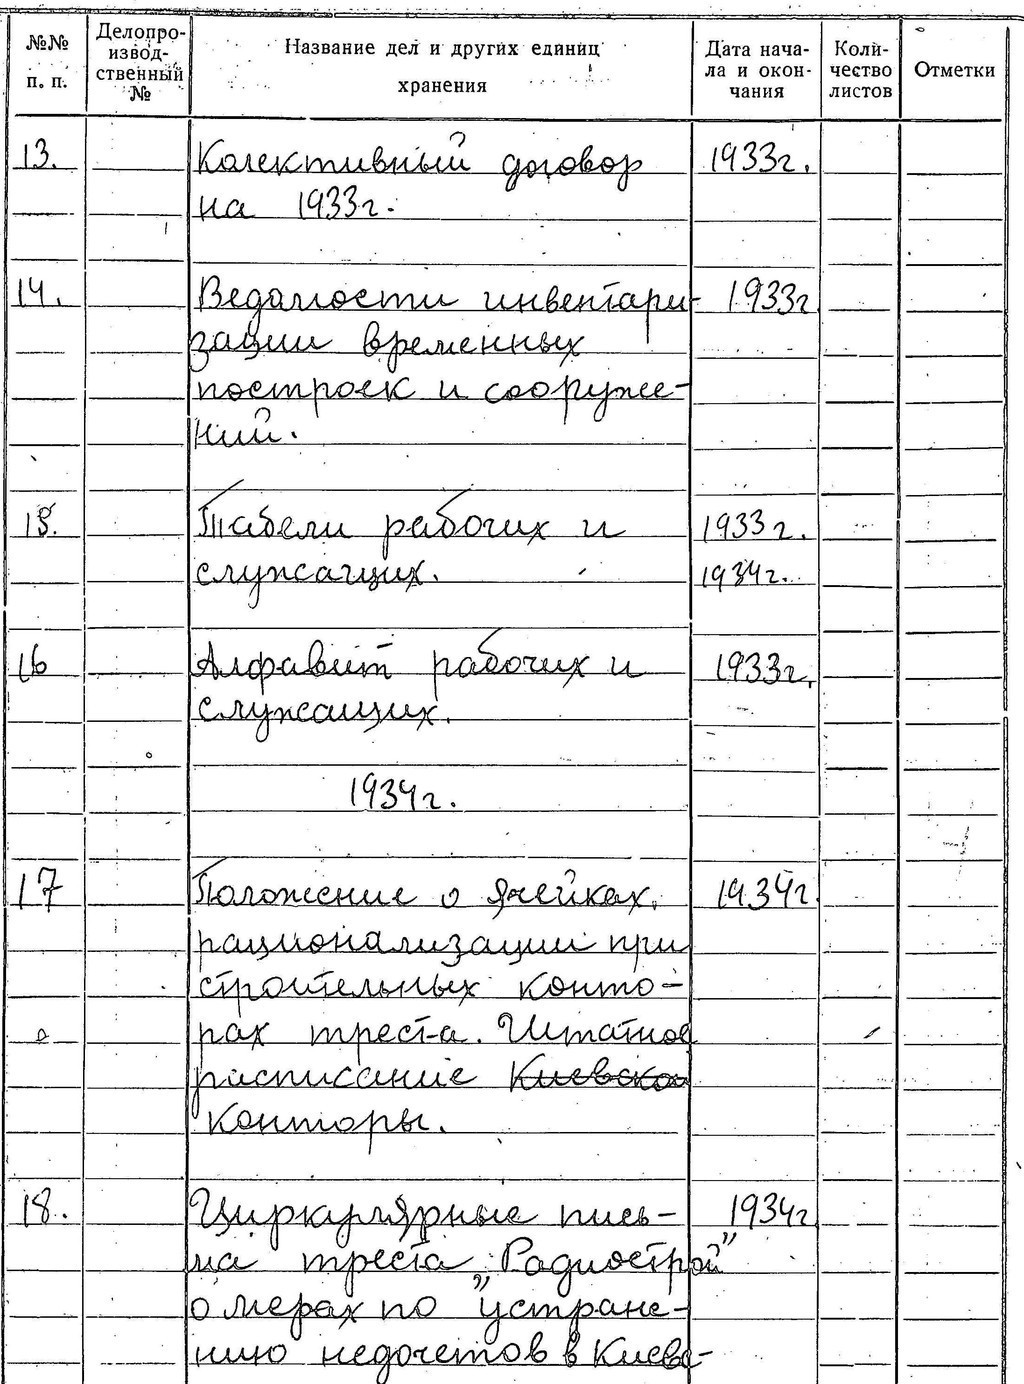 №№ п. п.
Делопро-
извод-
ственный
№
Название дел и других единиц
хранения
Дата нача-
ла и окон-
чания
Коли-
чество
листов
Отметки
13. Колективный договор 1933г.
на 1933г.
14. Ведомости инвентари- 1933г
зации временных
построек и сооруже-
ний.
15. Табели рабочих и 1933г.
служащих. 1934г.
16 Алфавит рабочих и 1933г.
служащих.
1934г.
17 Положение о ячейках 1934г.
рационализации при
строительных конто-
рах треста. Штатное
расписание Киевской
конторы.
18. Циркулярные пись- 1934г
ма треста „Радиострой”
о мерах по устране-
нию недочетов в Киевс-